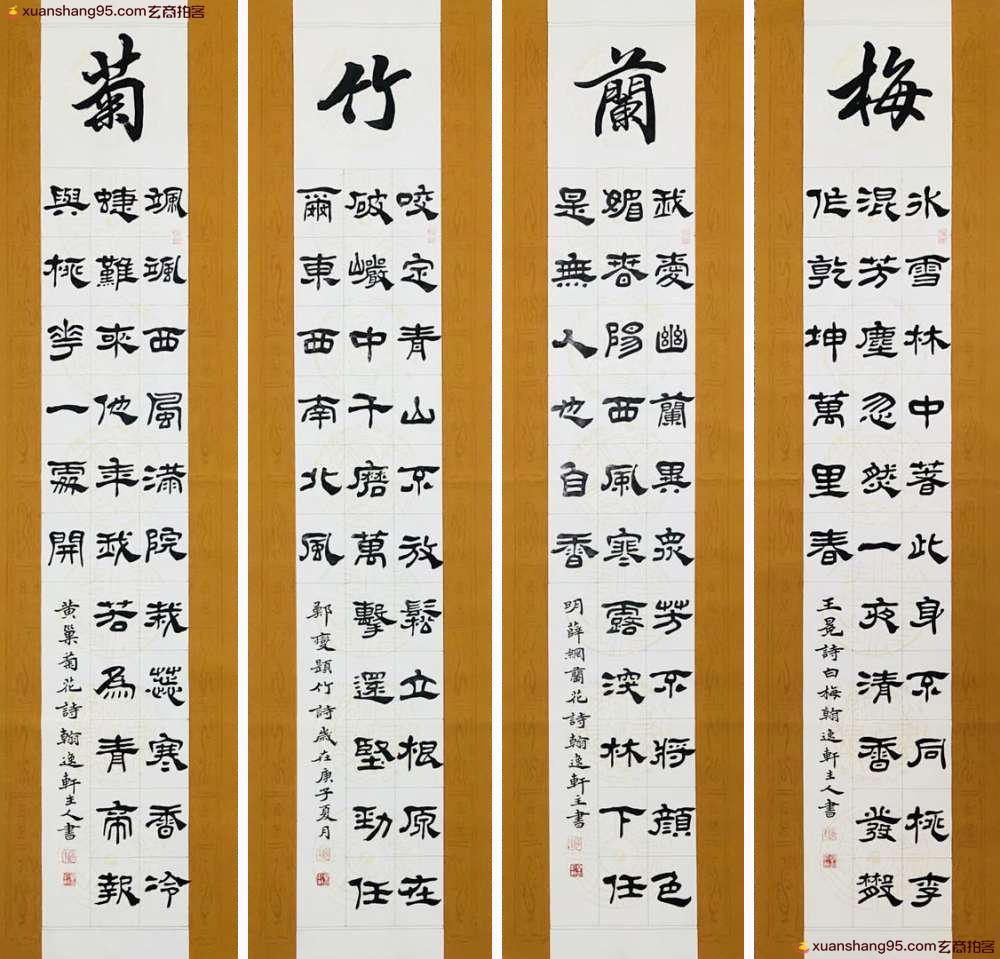 xuanshang95.com玄商拍客
梅
氷雪林中著此身不同桃李
混芳塵忽然一夜清香發散
作乾坤萬里春
王冕詩白梅翰逸軒主人書
蘭
我愛幽蘭異眾芳不將顏色
媚春陽西風寒露深林下任
是無人也自香
明薛網蘭花詩翰逸軒主書
竹
咬定青山不放鬆立根原在
破巖中千磨萬擊還堅勁任
爾東西南北風
鄭燮題竹詩歲在庚子夏月
菊
颯颯西風滿院栽蕊寒香冷
蝶難來他年我若為青帝報
與桃華一處開
黃巢菊花詩翰逸軒主人書
xuanshang95.com玄商拍客